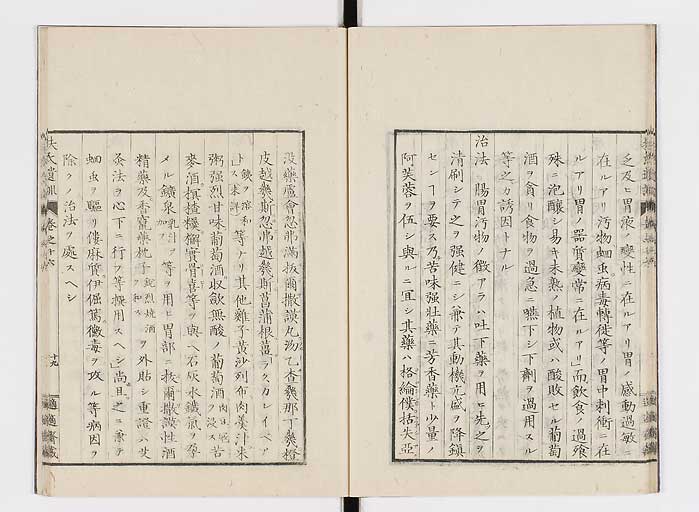 乏及ヒ胃液ノ變性ニ在ルアリ胃ノ感動過敏ニ
在ルアリ汚物蛔虫病毒轉徙等ノ胃中刺衝ニ在
ルアリ胃ノ器質變常ニ在ルアリ而飲食ノ過飱
殊ニ泡釀シ易キ未熟ノ植物或ハ酸敗セル葡萄
酒ヲ貪リ食物ヲ過急ニ嚥下シ下劑ヲ過用スル
等之カ誘因トナル
治法 腸胃汚物ノ徴アラハ吐下藥ヲ用ヒ先之ヲ
清刷シテ之ヲ强健ニシ兼テ其動機亢盛ヲ降鎮
センヿヲ要ス乃苦味强壮藥ニ芳香藥ト少量ノ
阿芙蓉ヲ伍シ與ルニ宜シ其藥ハ格綸僕括失亞
扶氏遺訓
卷之十六
十九
適適齋藏
没藥蘆會忽弗滿抜爾撒謨丸沕乙杏蕤那丁蕤橙
皮越蕤斯忽弗越蕤斯菖蒲根薑
等ナリ其他雞子黄沙列布肉羹汁米
粥强烈甘味葡萄酒收斂無酸ノ葡萄酒
麥酒
實骨喜等ヲ與ヘ石灰水鐵氣ヲ孕
メル鑛泉
等ヲ用ヒ胃部ニ抜爾撒謨性酒
精藥及香竄藥枕子
ヲ外貼シ重證ハ艾
灸法ヲ心下ニ行フ等撰用スヘシ尚且之ニ兼テ
蛔虫ヲ驅リ僂麻質伊偪篤黴毒ヲ攻ル等病因ヲ
除クノ治法ヲ處スヘシ